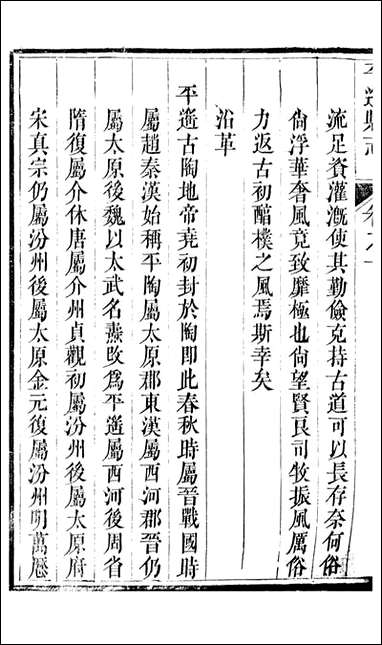 流足資灌漑使其勤儉克持古道可以長存奈何俗
尙浮華奢風竟致靡極也尙望賢良司牧振風厲俗
力返古初醕樸之風焉斯幸矣
沿革
平遙古陶地帝堯初封於陶即此春秋時屬晉戰國時
屬趙秦漢始稱平陶屬太原郡東漢屬西河郡晉仍
屬太原後魏以太武名燾改爲平遙屬西河後周省
隋復屬介休唐屬介州貞觀初屬汾州後屬太原府
宋真宗仍屬汾州後屬太原金元復屬汾州明萬厯